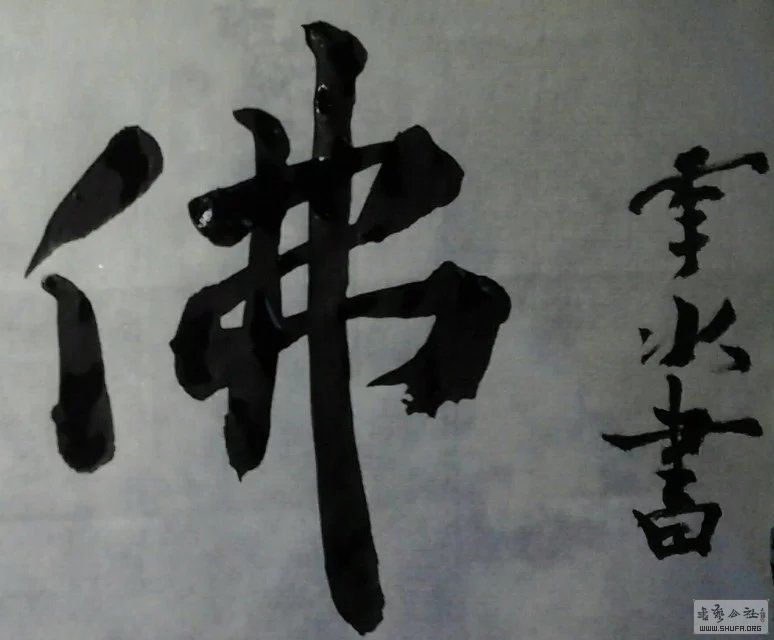 佛
水書
書藝公社
WWW.SHUFA.ORG